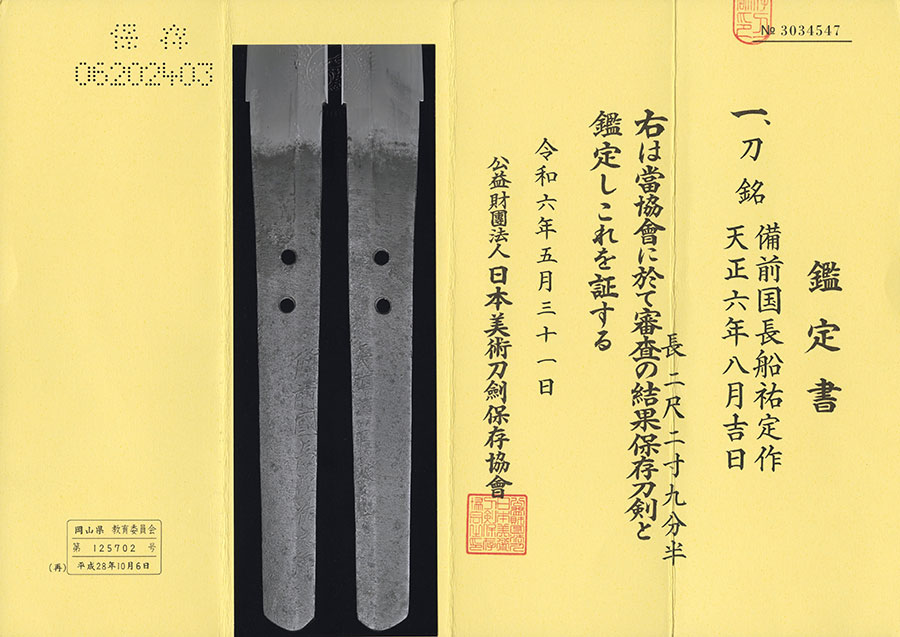 № 3034547
鑑定書
一、刀 銘 備前国長船祐定作
天正六年八月吉日
長二尺二寸九分半
右は當協會に於て審査の結果保存刀剣と
鑑定しこれを証する
令和六年五月三十一日
公益財團法人 日本美術刀劍保存協會
保存
06202403
岡山県 教育委員会
第 125702 号
(再) 平成28年10月6日